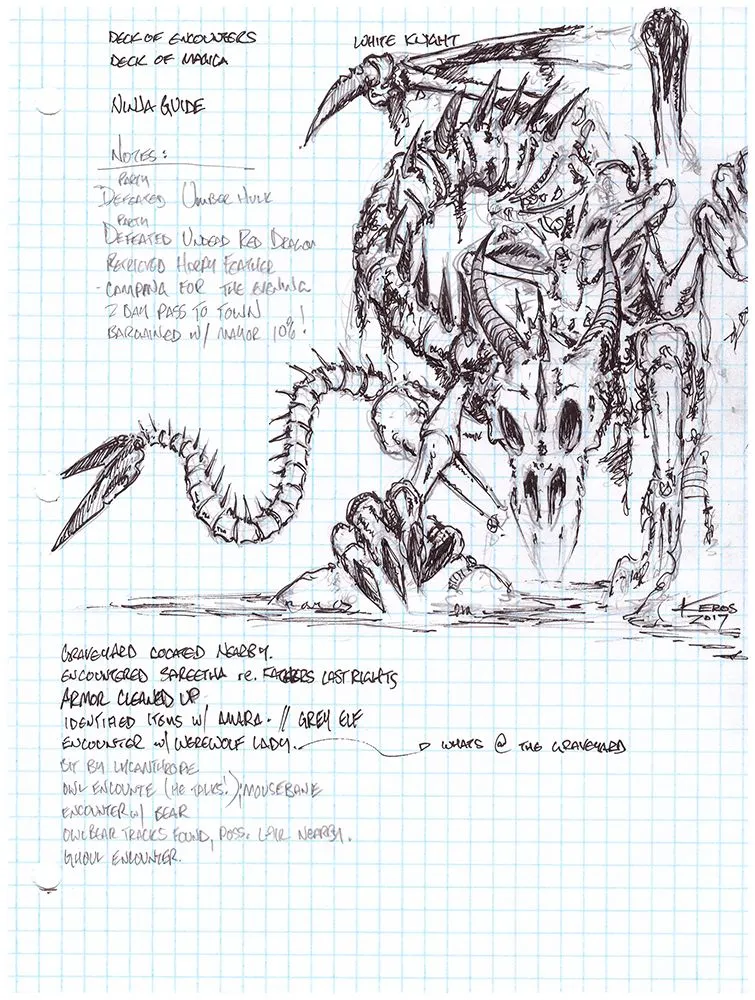 DECK OF ENCOUNTERS
WHITE KNIGHT
DECK OF MAGICA
NINJA GUIDE
NOTES:
PARTY
DEFEATED UMBER HULK
PARTY
DEFEATED UNDEAD RED DRAGON
RETRIEVED HARPY FEATHER
- CAMPING FOR THE EVENING
2 DAY PASS TO TOWN
BARGAINED W/ MAYOR 10%!
KEROS
2017
GRAVEYARD LOCATED NEARBY.
ENCOUNTERED SAREETHA re. FATHERS LAST RIGHTS
ARMOR CLEANED UP
IDENTIFIED ITEMS W/ AMARA. // GREY ELF
ENCOUNTER W/ WEREWOLF LADY. WHATS @ THE GRAVEYARD
BIT BY LYCANTHROPE
OWL ENCOUNTE (HE TALKS!); MOUSEBANE
ENCOUNTER W/ BEAR
OWLBEAR TRACKS FOUND, POSS. LAIR NEARBY.
GHOUL ENCOUNTER.